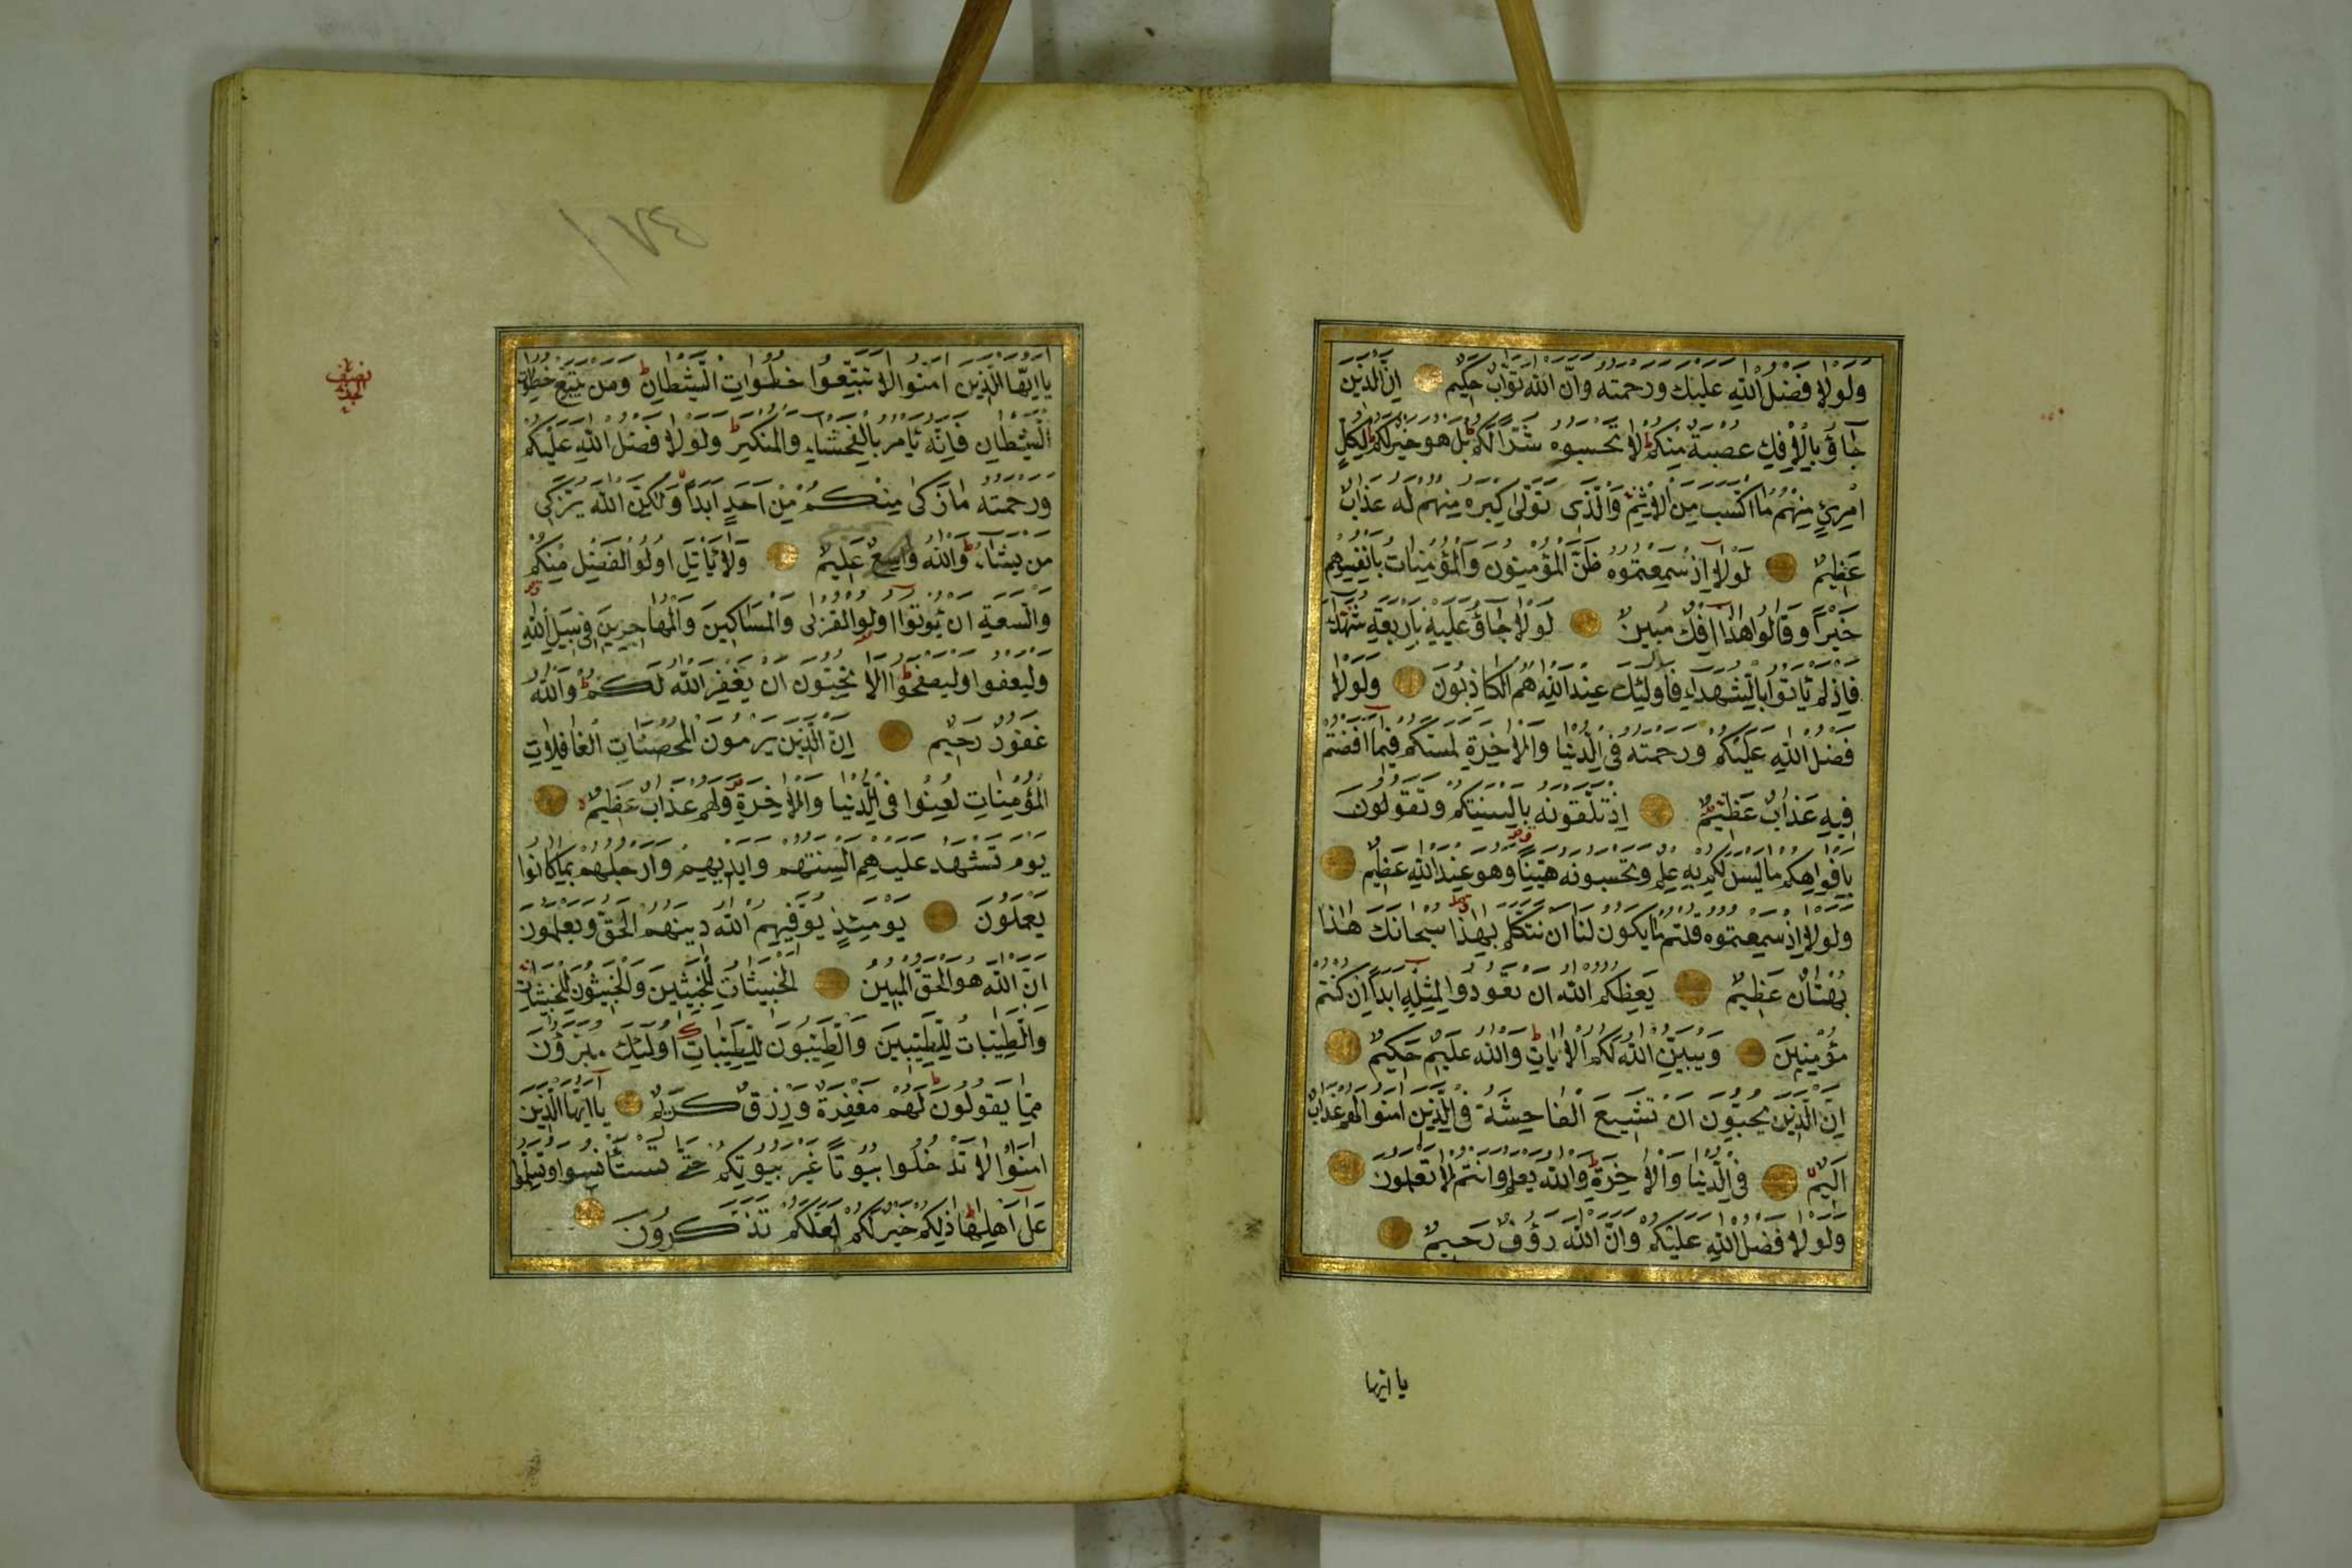 ولولا فضل الله عليك ورحمته وان الله تواب حكيم ان الذين
جاؤ بالافك عصبة منكم لا تحسبوه شرا لكم بل هو خير لكم لكل
امرئ منهم ما اكتسب من الاثم والذى تولى كبره منهم له عذاب
عظيم لولا اذ سمعتموه ظن المؤمنون والمؤمنات بانفسهم
خيرا وقالوا هذا افك مبين لولا جاؤ عليه باربعة شهداء
فاذ لم ياتوا بالشهداء فاولئك عند الله هم الكاذبون ولولا
فضل الله عليكم ورحمته فى الدنيا والاخرة لمسكم فيما افضتم
فيه عذاب عظيم اذ تلقونه بالسنتكم وتقولون
بافواهكم ما ليس لكم به علم وتحسبونه هينا وهو عند الله عظيم
ولولا اذ سمعتموه قلتم ما يكون لنا ان نتكلم بهذا سبحانك هذا
بهتان عظيم يعظكم الله ان تعودوا لمثله ابدا ان كنتم
مؤمنين ويبين الله لكم الايات والله عليم حكيم
ان الذين يحبون ان تشيع الفاحشة فى الذين امنوا لهم عذاب
اليم فى الدنيا والاخرة والله يعلم وانتم لا تعلمون
ولولا فضل الله عليكم وان الله رؤف رحيم
يا ايها
١٧٤
نصف
يا ايها الذين امنوا لا تتبعوا خطوات الشيطان ومن يتبع خطوات
الشيطان فانه يامر بالفحشاء والمنكر ولولا فضل الله عليكم
ورحمته ما زكى منكم من احد ابدا ولكن الله يزكى
من يشاء والله سميع عليم ولا ياتل اولوا الفضل منكم
والسعة ان يؤتوا اولو القربى والمساكين والمهاجرين فى سبيل الله
وليعفوا وليصفحوا الا تحبون ان يغفر الله لكم والله
غفور رحيم ان الذين يرمون المحصنات الغافلات
المؤمنات لعنوا فى الدنيا والاخرة ولهم عذاب عظيم
يوم تشهد عليهم السنتهم وايديهم وارجلهم بما كانوا
يعملون يومئذ يوفيهم الله دينهم الحق ويعلمون
ان الله هو الحق المبين الخبيثات للخبيثين والخبيثون للخبيثات
والطيبات للطيبين والطيبون للطيبات اولئك مبرؤن
مما يقولون لهم مغفرة ورزق كريم يا ايها الذين
امنوا لا تدخلوا بيوتا غير بيوتكم حتى تستأنسوا وتسلموا
على اهلها ذلكم خير لكم لعلكم تذكرون